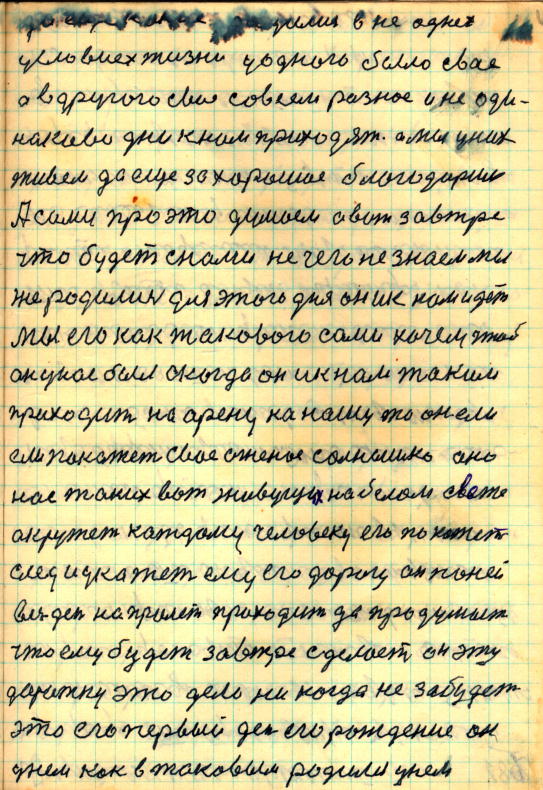 родились в не однех
условиех жизни у одного было свае
а в другого свое совсем разное и не оди-
наково дни к нам приходят. а мы у них
живем да еще за хорошое благодарим
А сами про это думаем а вот завтре
что будет снами не чего не знаем мы
же родились для этого дня он и к нам идет
мы его как такового сами хочем чтоб
он у нас был а когда он и к нам таким
приходит на арену на нашу то он ели
ели покажет свае огненое солнышко ано
нас таких вот живущих на белом свете
окружет каждому человеку его покажет
след и укажет ему его дорогу он по ней
весь ден на пролет проходит да продумает
что ему будет завтре сделает, он эту
дорожку это дело ни когда не забудет
это его первый ден его рождение он
у нем как в таковым родили у нем